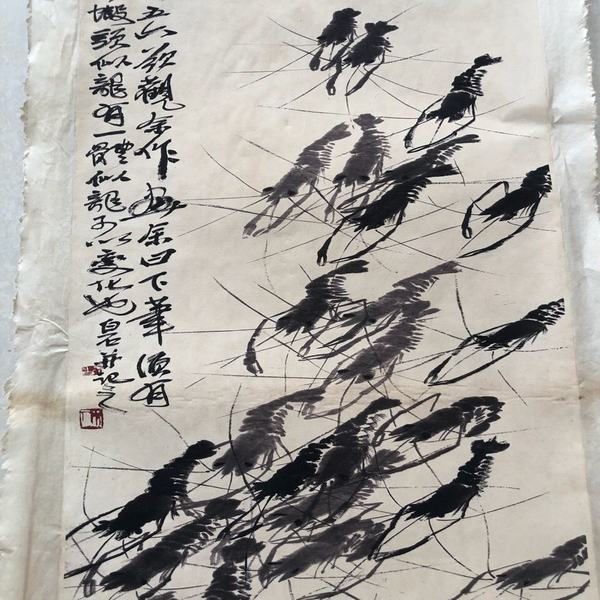 五六欲觀余作畫余曰下筆須有
蝦頭似龍有一體似龍可以變化也 白石并記之